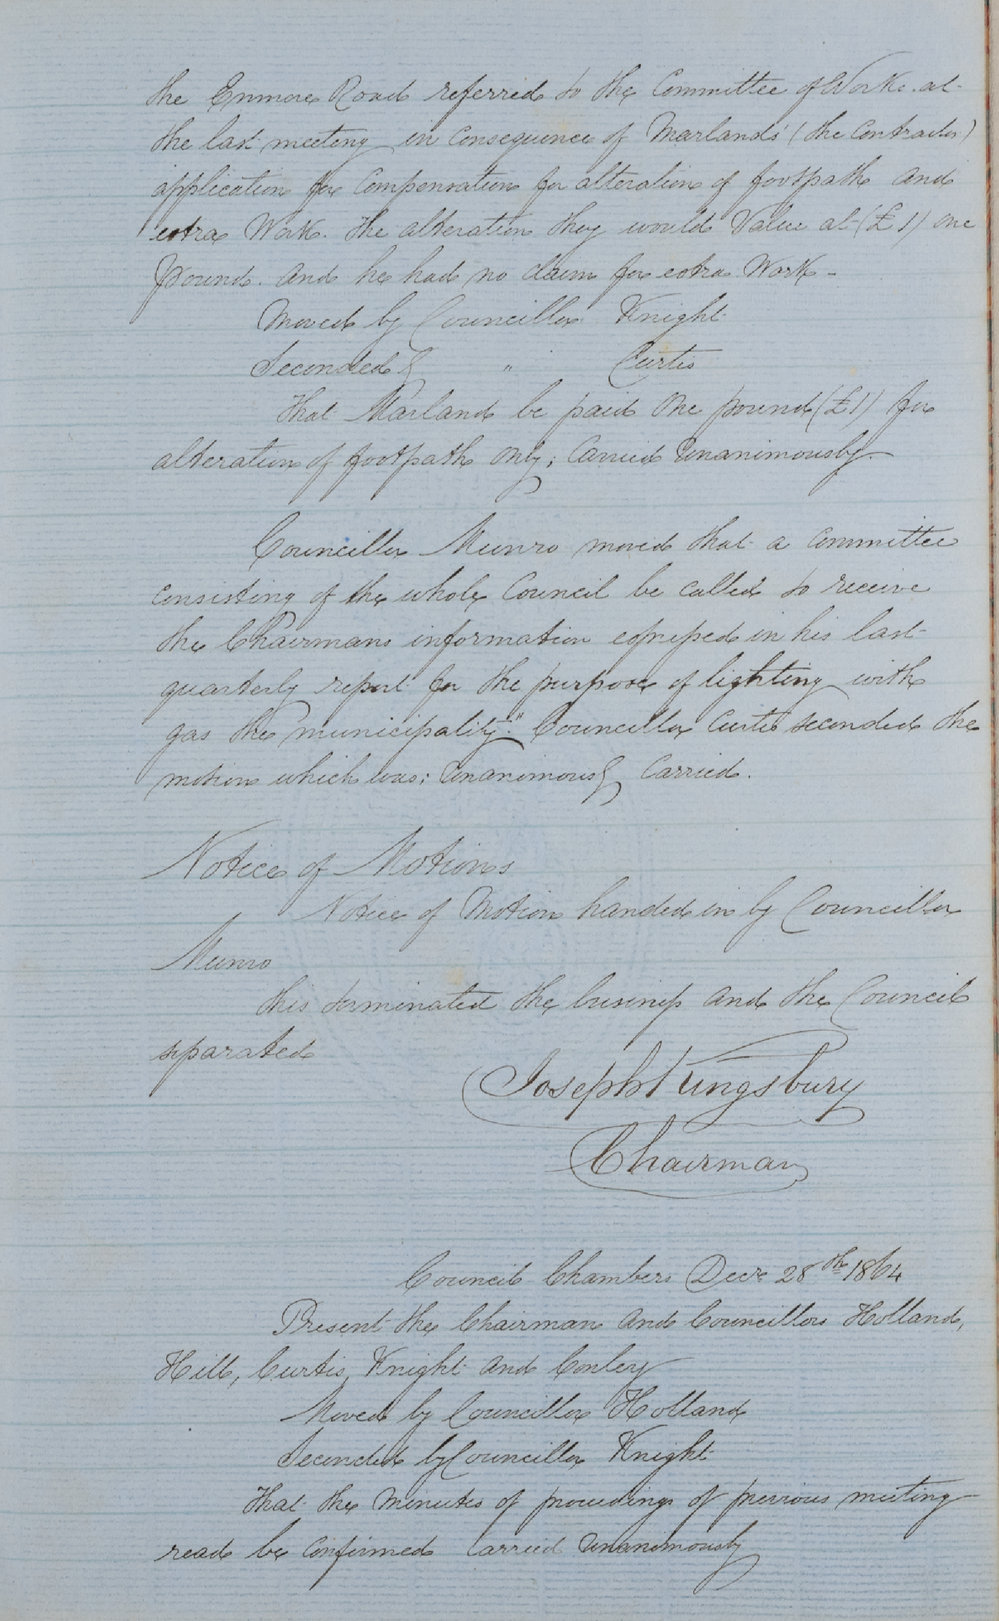 the Enmore Road referred to the Committee of Works at
the last meeting in consequence of Marlands' (the Contractor)
application for Compensation for alteration of footpath and
extra Work. The alteration they would Value at (£1) one
pound. and he had no claim for extra Work -
Moved by Councillor Knight
Seconded by " Curtis
That Marland be paid One pound (£1) for
alteration of footpath only; Carried Unanimously.
Councillor Munro moved that a Committee
consisting of the whole Council be called to receive
the Chairmans information expressed in his last
quarterly report for the purpose of lighting with
gas the municipality." Councillor Curtis seconded the
motion which was; Unanimously Carried.
Notice of Motions
Notice of Motion handed in by Councillor
Munro
This terminated the business and the Council
separated
Joseph Kingsbury
Chairman
Council Chambers Decr 28th 1864
Present the Chairman and Councillors Holland,
Hill, Curtis, Knight and Conley
Moved by Councillor Holland
Seconded by Councillor Knight
That the Minutes of proceedings of previous meeting
read be Confirmed Carried Unanimously